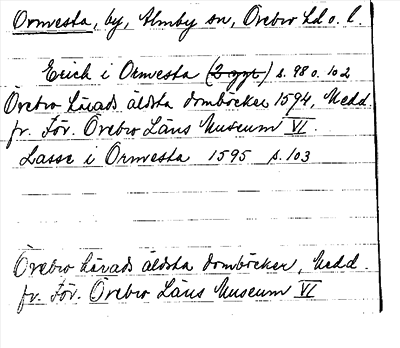 Ormesta, by, Almby sn, Örebro hd o. l.
Erich i Ormvesta (2 ggr) s. 98 o. 102
Örebro härads äldsta domböcker 1594, Medd.
fr. För. Örebro Läns Museum VI.
Lasse i Ormvesta 1595 s. 103
Örebro härads äldsta domböcker, Medd.
fr. För. Örebro Läns Museum VI